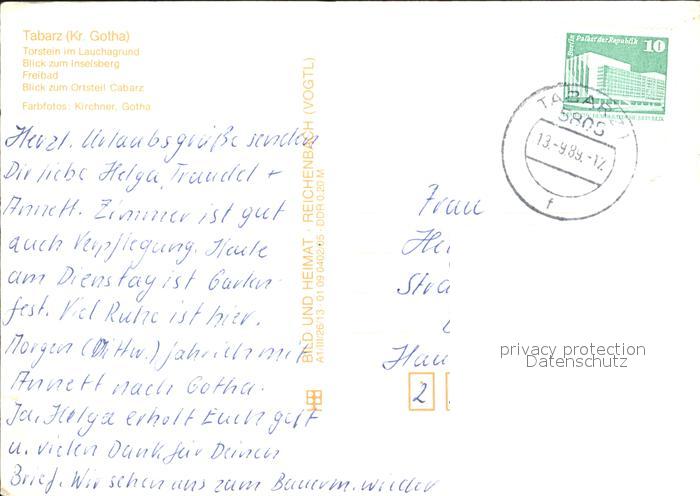 Tabarz (Kr. Gotha)
Torstein im Lauchagrund
Blick zum Inselsberg
Freibad
Blick zum Ortsteil Cabarz
Farbfotos: Kirchner, Gotha
Herzl. Urlaubsgrüße senden
Dir liebe Helga, Traudel +
Annett. Zimmer ist gut
auch Verpflegung. Heute
am Dienstag ist Garten-
fest. Viel Ruhe ist hier.
Morgen (Mittw.) fahr ich mit
Annett nach Gotha.
Ja, Helga erholt Euch gut
u. vielen Dank für Deinen
Brief. Wir sehen uns zum Bauerm. wieder
BILD UND HEIMAT · REICHENBACH (VOGTL)
A1/III/26/13 01 09 0402/65 · DDR 0,20 M
Berlin Palast der Republik
10
TABARZ 1
5808
13.-9.89.-17
f
Frau
He
Stra
Hau
2
privacy protection
Datenschutz